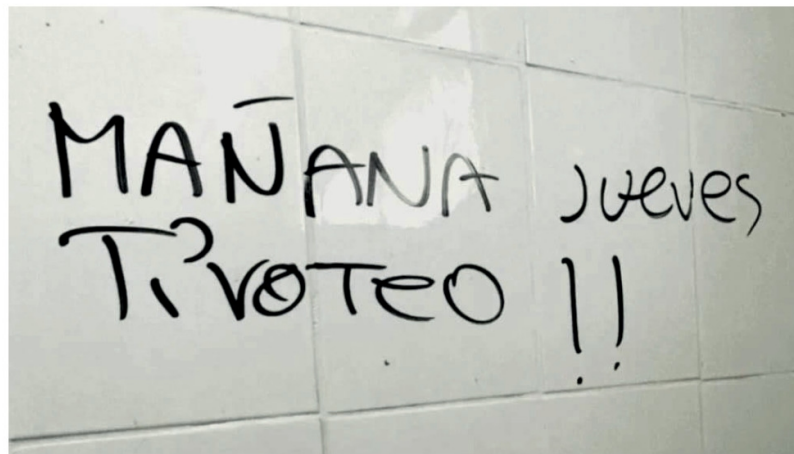 MAÑANA Jueves
TiROTEO !!